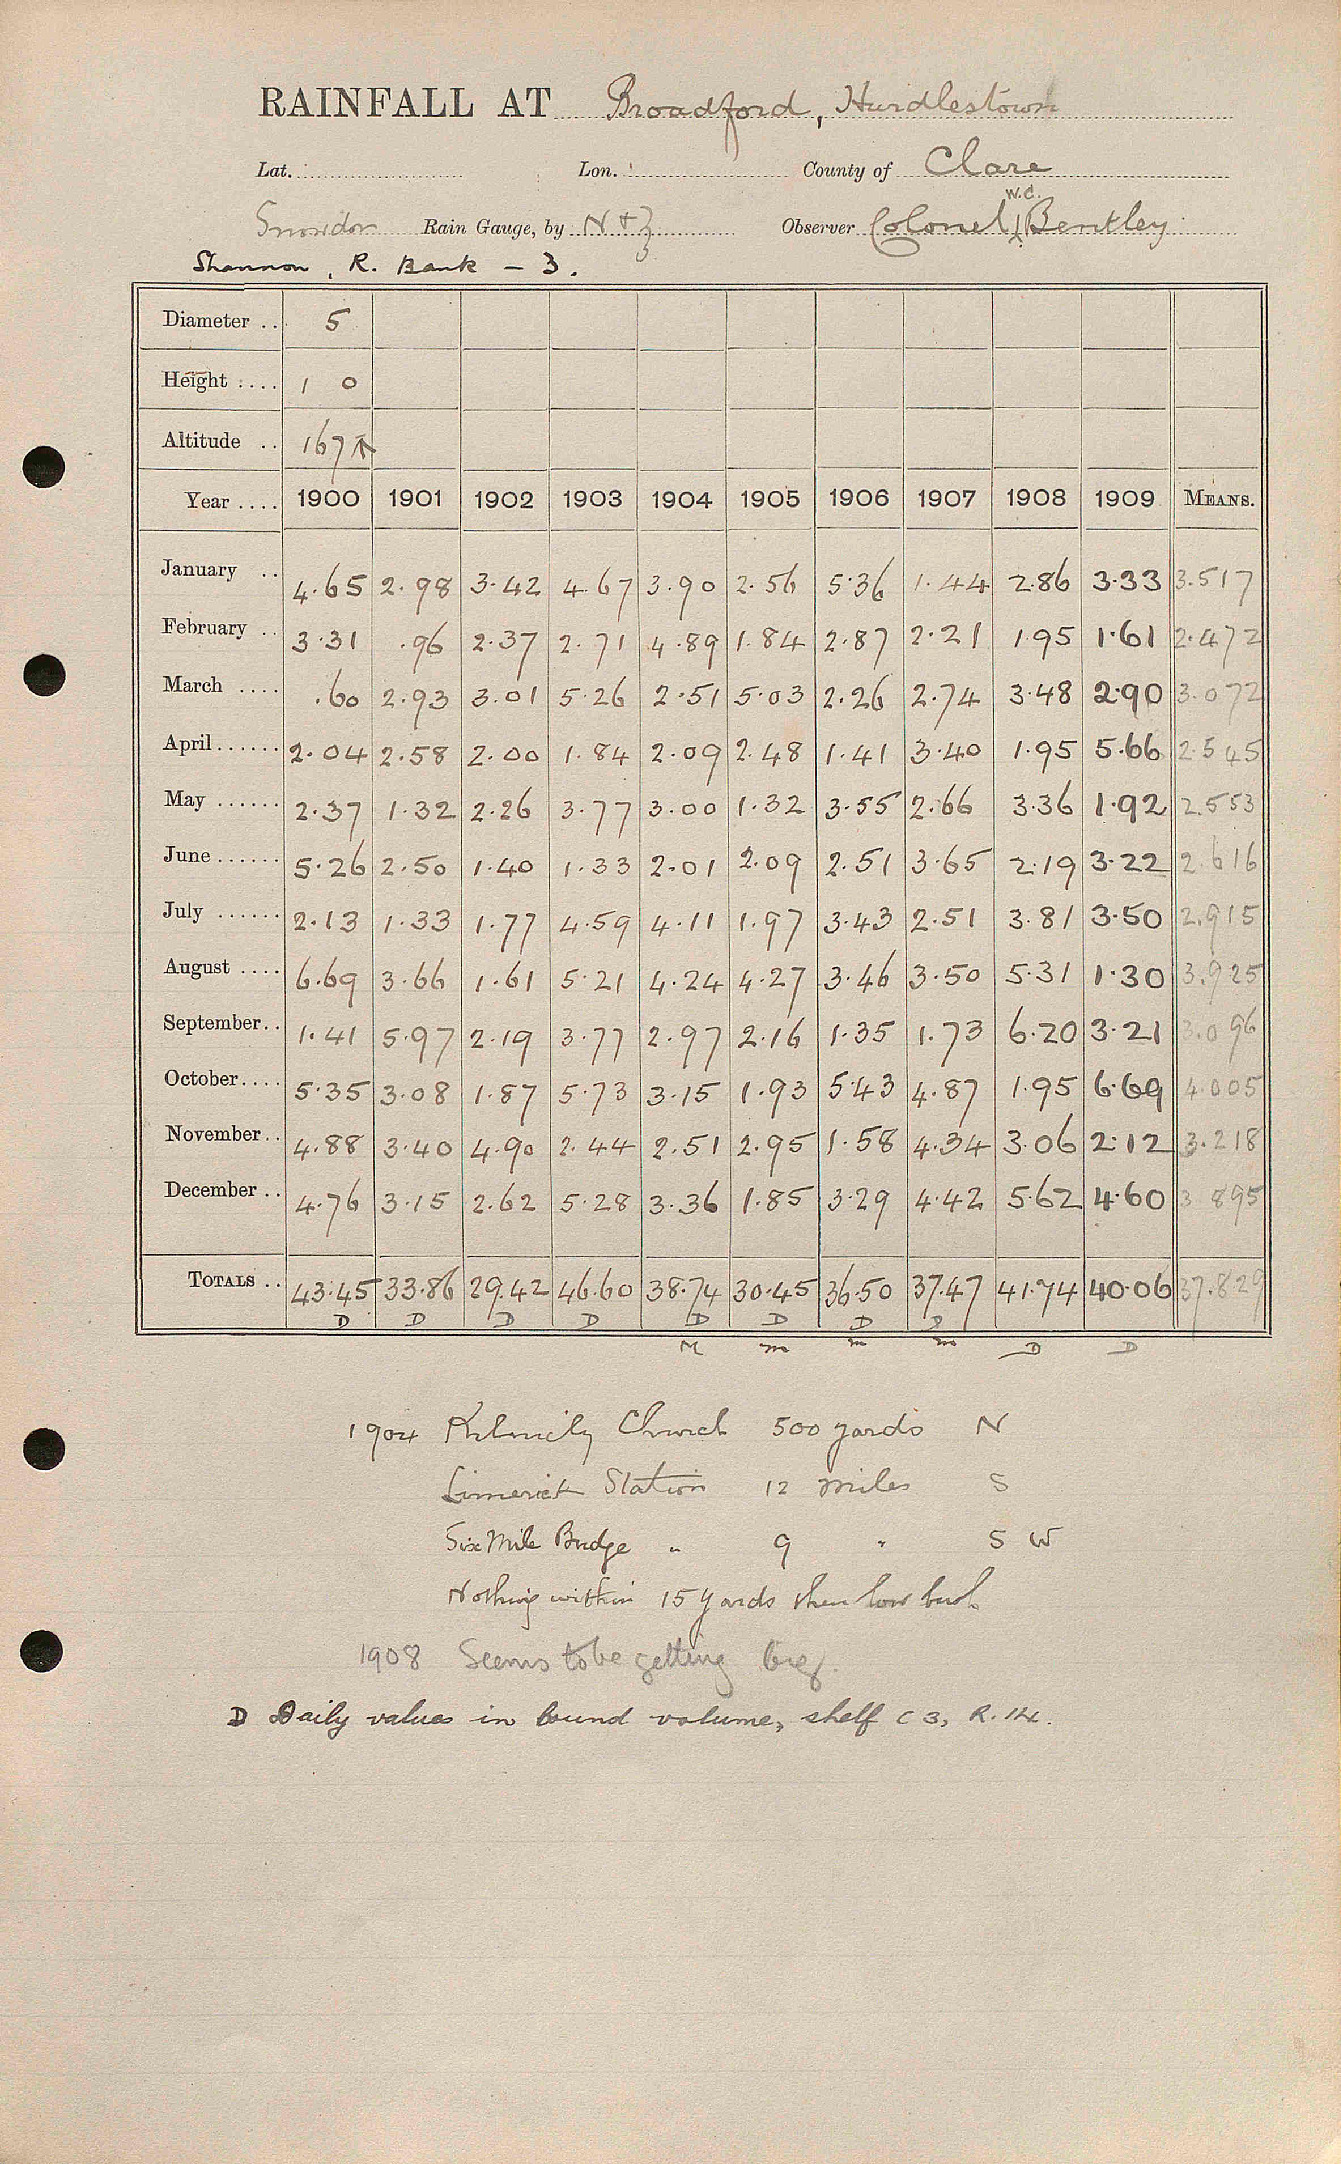 RAINFALL AT Broadford, Hurdlestown
Lat. Lon. County of Clare
Snowdon Rain Gauge, by N & Z Observer Colonel W.C. Bentley
Shannon, R. Bank - 3.
Diameter .. 5
Height .... 1 0
Altitude .. 167
Year .... 1900 1901 1902 1903 1904 1905 1906 1907 1908 1909 MEANS.
January .. 4.65 2.98 3.42 4.67 3.90 2.56 5.36 1.44 2.86 3.33 3.517
February .. 3.31 .96 2.37 2.71 4.89 1.84 2.87 2.21 1.95 1.61 2.472
March .... .60 2.93 3.01 5.26 2.51 5.03 2.26 2.74 3.48 2.90 3.072
April ...... 2.04 2.58 2.00 1.84 2.09 2.48 1.41 3.40 1.95 5.66 2.545
May ...... 2.37 1.32 2.26 3.77 3.00 1.32 3.55 2.66 3.36 1.92 2.553
June ...... 5.26 2.50 1.40 1.33 2.01 2.09 2.51 3.65 2.19 3.22 2.616
July ...... 2.13 1.33 1.77 4.59 4.11 1.97 3.43 2.51 3.81 3.50 2.915
August .... 6.69 3.66 1.61 5.21 4.24 4.27 3.46 3.50 5.31 1.30 3.925
September .. 1.41 5.97 2.19 3.77 2.97 2.16 1.35 1.73 6.20 3.21 3.096
October .... 5.35 3.08 1.87 5.73 3.15 1.93 5.43 4.87 1.95 6.69 4.005
November .. 4.88 3.40 4.90 2.44 2.51 2.95 1.58 4.34 3.06 2.12 3.218
December .. 4.76 3.15 2.62 5.28 3.36 1.85 3.29 4.42 5.62 4.60 3.895
TOTALS .. 43.45 33.86 29.42 46.60 38.74 30.45 36.50 37.47 41.74 40.06 37.829
D D D D D D D D
M m m m D D
1904 Church 500 yards N
Limerick Station 12 miles S
Six Mile Bridge " 9 " S W
Nothing within 15 yards then low bush
1908 Seems to be getting
D Daily values in bound volume, shelf C 3, R. 14.